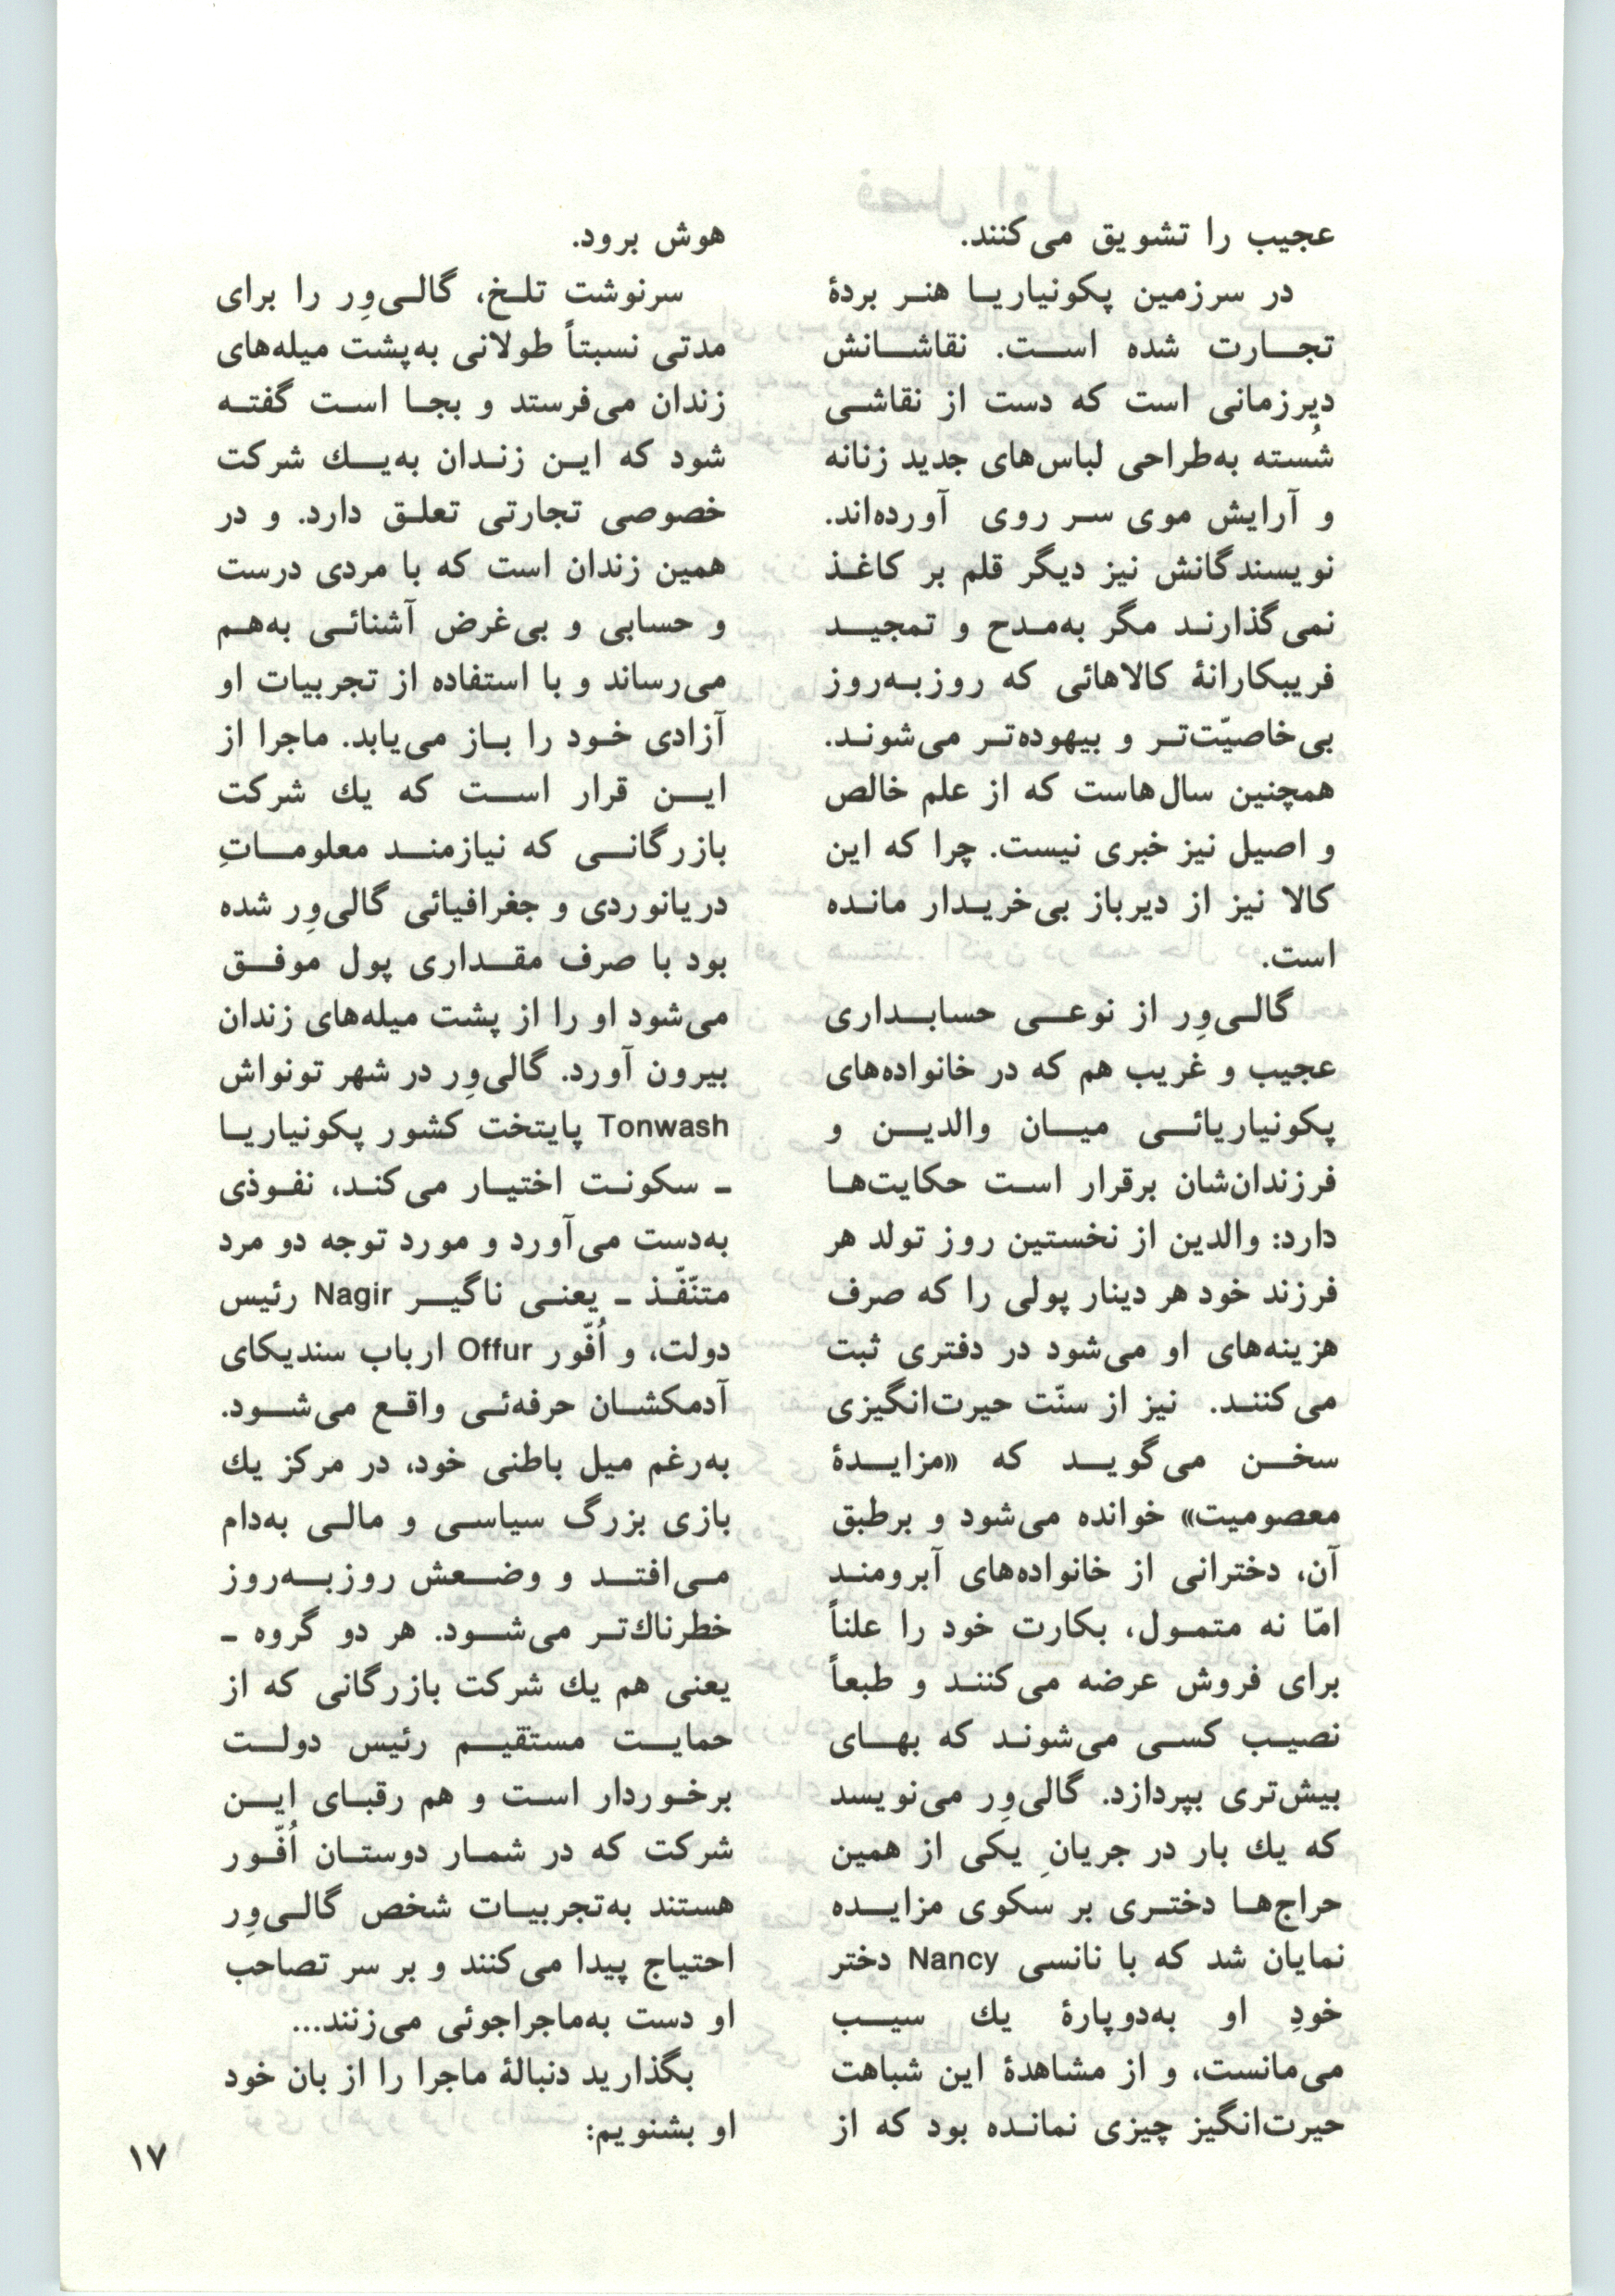 عجیب را تشویق می‌کنند.
در سرزمین پکونیاریا هنر بردهٔ
تجارت شده است. نقاشانش
دیرزمانی است که دست از نقاشی
شُسته به‌طراحی لباس‌های جدید زنانه
و آرایش موی سر روی آورده‌اند.
نویسندگانش نیز دیگر قلم بر کاغذ
نمی‌گذارند مگر به‌مدح و تمجید
فریبکارانهٔ کالاهائی که روزبه‌روز
بی‌خاصیّت‌تر و بیهوده‌تر می‌شوند.
همچنین سال‌هاست که از علم خالص
و اصیل نیز خبری نیست. چرا که این
کالا نیز از دیرباز بی‌خریدار مانده
است.
گالی‌وِر از نوعی حسابداری
عجیب و غریب هم که در خانواده‌های
پکونیاریائی میان والدین و
فرزندان‌شان برقرار است حکایت‌ها
دارد: والدین از نخستین روز تولد هر
فرزند خود هر دینار پولی را که صرف
هزینه‌های او می‌شود در دفتری ثبت
می‌کنند. نیز از سنّت حیرت‌انگیزی
سخن می‌گوید که «مزایدهٔ
معصومیت» خوانده می‌شود و برطبق
آن، دخترانی از خانواده‌های آبرومند
امّا نه متمول، بکارت خود را علناً
برای فروش عرضه می‌کنند و طبعاً
نصیب کسی می‌شوند که بهای
بیش‌تری بپردازد. گالی‌وِر می‌نویسد
که یك بار در جریانِ یکی از همین
حراج‌ها دختری بر سکوی مزایده
نمایان شد که با نانسی Nancy دختر
خودِ او به‌دوپارهٔ یك سیب
می‌مانست، و از مشاهدهٔ این شباهت
حیرت‌انگیز چیزی نمانده بود که از
هوش برود.
سرنوشت تلخ، گالی‌وِر را برای
مدتی نسبتاً طولانی به‌پشت میله‌های
زندان می‌فرستد و بجا است گفته
شود که این زندان به‌یك شرکت
خصوصی تجارتی تعلق دارد. و در
همین زندان است که با مردی درست
و حسابی و بی‌غرض آشنائی به‌هم
می‌رساند و با استفاده از تجربیات او
آزادی خود را باز می‌یابد. ماجرا از
این قرار است که یك شرکت
بازرگانی که نیازمند معلوماتِ
دریانوردی و جغرافیائی گالی‌وِر شده
بود با صرف مقداری پول موفق
می‌شود او را از پشت میله‌های زندان
بیرون آورد. گالی‌وِر در شهر تونواش
Tonwash پایتخت کشور پکونیاریا
ـ سکونت اختیار می‌کند، نفوذی
به‌دست می‌آورد و مورد توجه دو مرد
متنّفّذ ـ یعنی ناگیر Nagir رئیس
دولت، و اُفّور Offur ارباب سندیکای
آدمکشان حرفه‌ئی واقع می‌شود.
به‌رغم میل باطنی خود، در مرکز یك
بازی بزرگ سیاسی و مالی به‌دام
می‌افتد و وضعش روزبه‌روز
خطرناك‌تر می‌شود. هر دو گروه ـ
یعنی هم یك شرکت بازرگانی که از
حمایت مستقیم رئیس دولت
برخوردار است و هم رقبای این
شرکت که در شمار دوستان اُفّور
هستند به‌تجربیات شخص گالی‌وِر
احتیاج پیدا می‌کنند و بر سر تصاحب
او دست به‌ماجراجوئی می‌زنند...
بگذارید دنبالهٔ ماجرا را از بان خود
او بشنویم:
۱۷